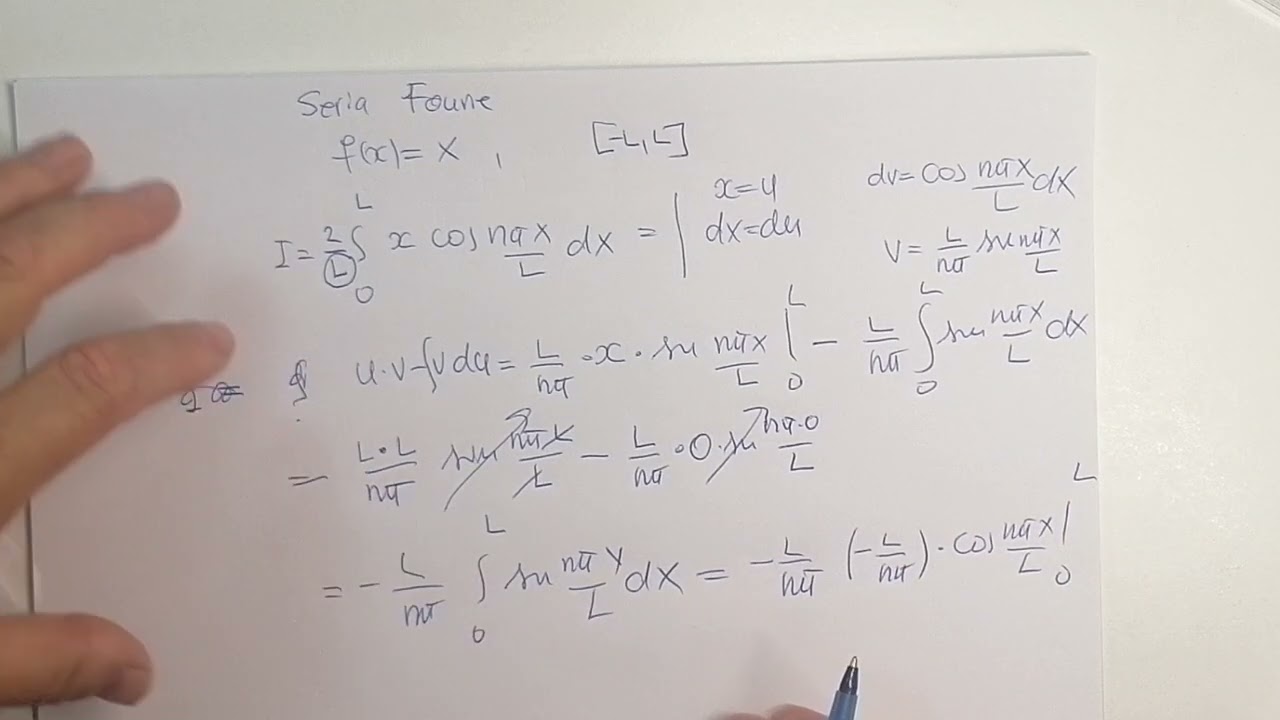 Seria Foune
f(x) = x , [-L, L]
I = 2/L ∫₀ᴸ x cos nπx/L dx = | x = u dv = cos nπx/L dx
dx = du v = L/nπ sin nπx/L
u·v - ∫v du = L/nπ · x · sin nπx/L |₀ᴸ - L/nπ ∫₀ᴸ sin nπx/L dx
= L·L/nπ sin nπL/L - L/nπ · 0 · sin nπ·0/L
= - L/nπ ∫₀ᴸ sin nπx/L dx = - L/nπ (- L/nπ) · cos nπx/L |₀ᴸ